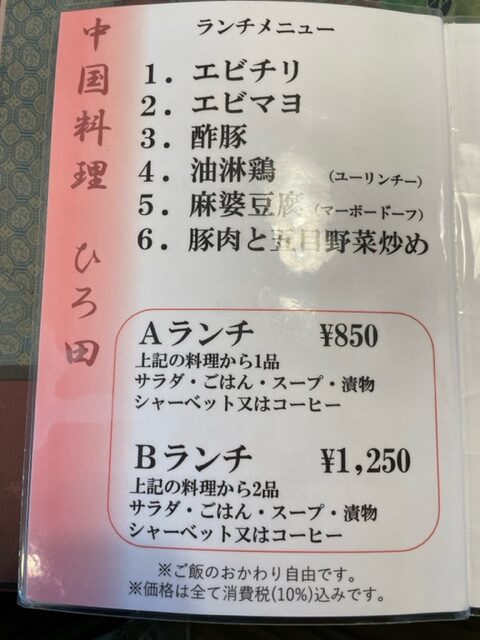 中国料理 ひろ田
ランチメニュー
1．エビチリ
2．エビマヨ
3．酢豚
4．油淋鶏 （ユーリンチー）
5．麻婆豆腐（マーボードーフ）
6．豚肉と五目野菜炒め
Aランチ ¥850
上記の料理から1品
サラダ・ごはん・スープ・漬物
シャーベット又はコーヒー
Bランチ ¥1,250
上記の料理から2品
サラダ・ごはん・スープ・漬物
シャーベット又はコーヒー
※ご飯のおかわり自由です。
※価格は全て消費税(10%)込みです。